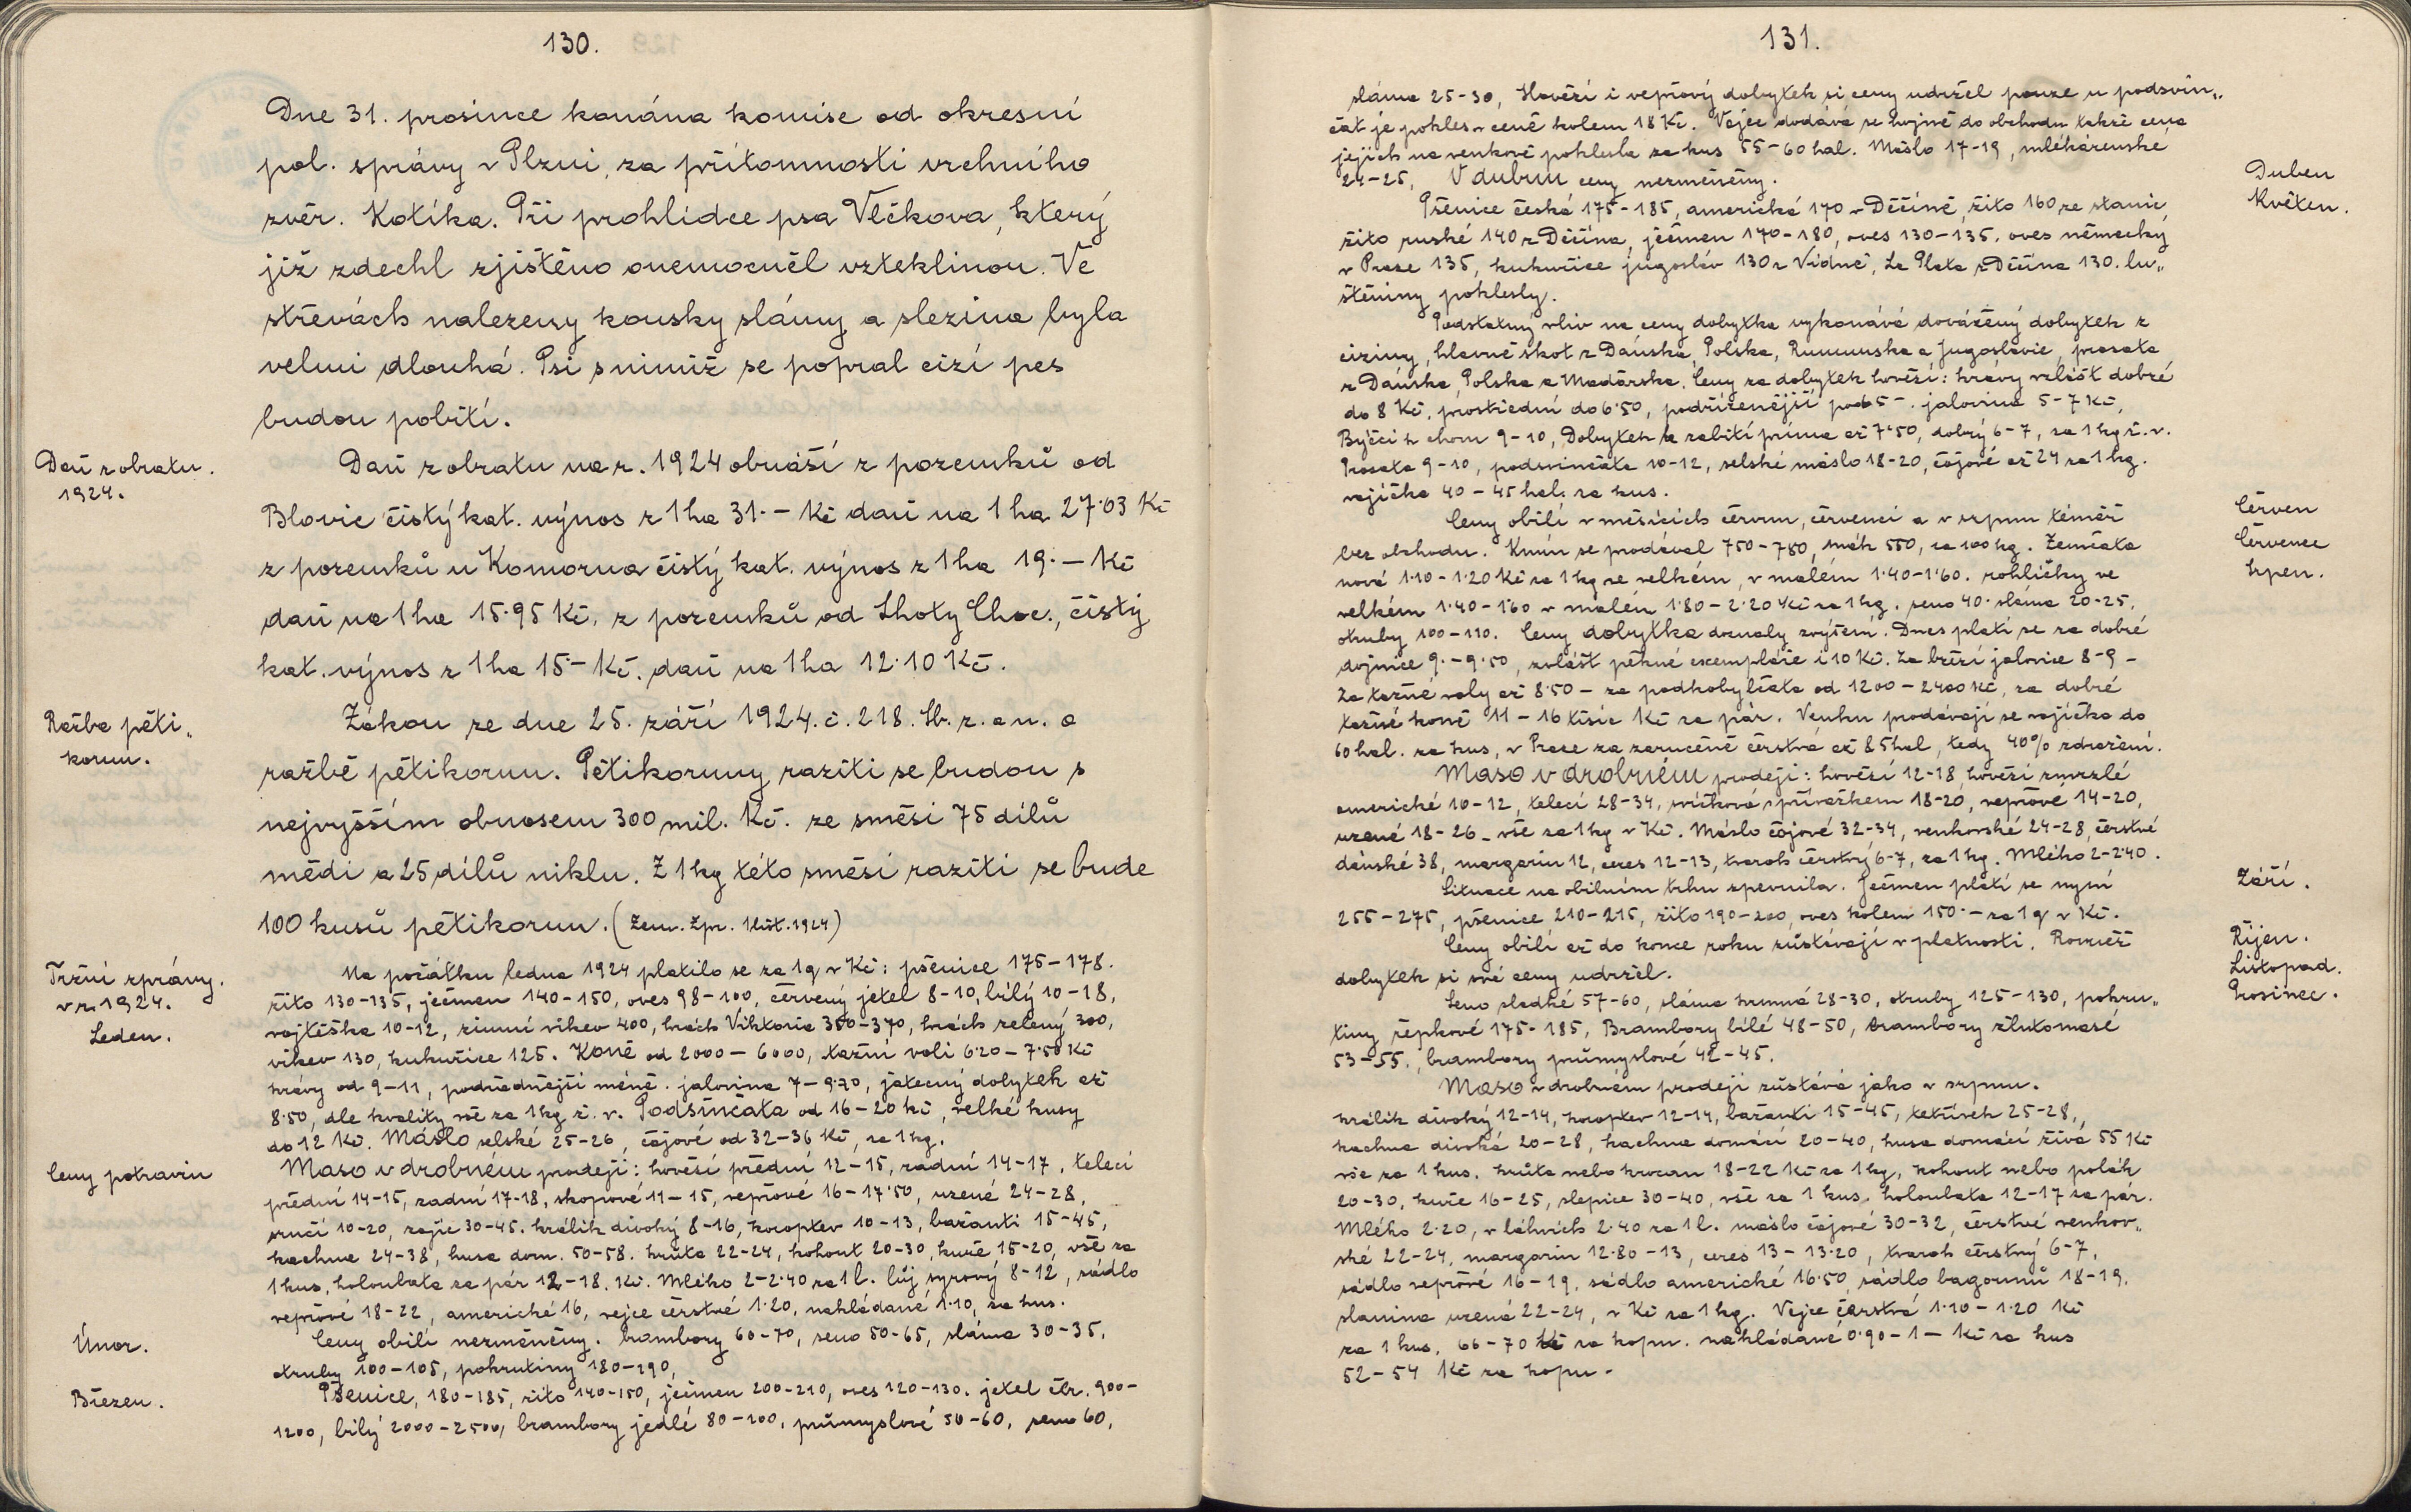 130.
Dne 31. prosince konána komise od okresní
pol. správy v Plzni, za přítomnosti vrchního
zvěr. Kotíka. Při prohlídce psa Vlčkova, který
již zdechl zjištěno onemocněl vzteklinou. Ve
střevách nalezeny kousky slámy a slezina byla
velmi dlouhá. Psi s nimiž se popral cizí pes
budou pobiti.
Daň z obratu.
1924.
Daň z obratu na r. 1924 obnáší z pozemků od
Blovic čistý kat. výnos z 1 ha 31·– Kč daň na 1 ha 27·03 Kč
z pozemků u Komorna čistý kat. výnos z 1 ha 19·– Kč
daň na 1 ha 15·95 Kč, z pozemků od Lhoty Choc., čistý
kat. výnos z 1 ha 15·– Kč. daň na 1 ha 12·10 Kč.
Ražba pěti„
korun.
Zákon ze dne 25. září 1924. č. 218. Sb. z. a n. o
ražbě pětikorun. Pětikoruny raziti se budou s
nejvyšším obnosem 300 mil. Kč. ze směsi 75 dílů
mědi a 25 dílů niklu. Z 1 kg této směsi raziti se bude
100 kusů pětikorun. (Zem. Zpr. 1924)
Tržní zprávy.
v r. 1924.
Leden.
Na počátku ledna 1924 platilo se za 1 q v Kč: pšenice 175–178.
žito 130–135, ječmen 140–150, oves 98–100, červený jetel 8–10, bílý 10–18,
vojtěška 10–12, zimní vikev 400, hrách Viktoria 350–370, hrách zelený 300,
vikev 130, kukuřice 125. Koně od 2000–6000, tažní voli 6·20–7·50 Kč
krávy od 9–11, podřadnější méně. jalovina 7–9·70, jatečný dobytek až
8·50, dle kvality vše za 1 kg ž. v. Podsinčata od 16–20 Kč, velké kusy
do 12 Kč. Máslo selské 25–26, čajové od 32–36 Kč, za 1 kg.
Ceny potravin
Maso v drobném prodeji: hovězí přední 12–15, zadní 14–17, telecí
přední 14–15, zadní 17–18, skopové 11–15, vepřové 16–17·50, uzené 24–28,
srnčí 10–20, zajíc 30–45. králík divoký 8–16, koroptev 10–13, bažanti 15–45,
kachna 24–38, husa dom. 50–58. krůta 22–24, kohout 20–30, kuře 15–20, vše za
1 kus, holoubata za pár 12–18. Kč. Mléko 2–2·40 za 1 l. lůj syrový 8–12, sádlo
vepřové 18–22, americké 16, vejce čerstvé 1·20, nakládané 1·10, za kus.
Únor.
Ceny obilí nezměněny. brambory 60–70, seno 50–65, sláma 30–35,
otruby 100–105, pokrutiny 180–190,
Březen.
Pšenice, 180–185, žito 140–150, ječmen 200–210, oves 120–130. jetel čer. 900–
1200, bílý 2000–2500, brambory jedlé 80–100, průmyslové 50–60, seno 60,
131.
sláma 25–30, Hovězí i vepřový dobytek si ceny udržel pouze u podsvin„
čat je pokles v ceně kolem 18 Kč. Vejce dodává se hojně do obchodu takže cena
jejich na venkově poklesla za kus 55–60 hal. Máslo 17–19, mlékárenské
24–25, V dubnu ceny nezměněny.
Duben
Květen.
Pšenice česká 175–185, americká 170 v Děčíně, žito 160 ze stanic,
žito ruské 140 z Děčína, ječmen 170–180, oves 130–135. oves německý
v Praze 135, kukuřice jugosláv 130 z Vídně, La Plata z Děčína 130. lu„
štěniny poklesly.
Podstatný vliv na ceny dobytka vykonává dovážený dobytek z
ciziny, hlavně skot z Dánska, Polska, Rumunska a Jugoslavie, prasata
z Dánska, Polska a Maďarska. Ceny za dobytek hovězí: krávy zvlášť dobré
do 8 Kč, prostřední do 6·50, podřízenější pod 5–. jalovina 5–7 Kč,
Býčci k chovu 9–10, Dobytek k zabití príma až 7·50, dobrý 6–7, za 1 kg ž. v.
Prasata 9–10, podsvinčata 10–12, selské máslo 18–20, čajové až 24 za 1 kg.
vajíčka 40–45 hal. za kus.
Červen
Červenec
Srpen.
Ceny obilí v měsících červnu, červenci a v srpnu téměř
bez obchodu. Kmín se prodával 750–780, mák 550, za 100 kg. Zemčata
nové 1·10–1·20 Kč za 1 kg ve velkém, v malém 1·40–1·60. rohlíčky ve
velkém 1·40–1·60 v malém 1·80–2·20 Kč za 1 kg. seno 40· sláma 20–25,
otruby 100–110. Ceny dobytka doznaly zvýšení. Dnes platí se za dobré
dojnice 9·–9·50, zvlášť pěkné exempláře i 10 Kč. Za březí jalovice 8–9–
Za tažné voly až 8·50– za podkobylčata od 1200–2400 Kč, za dobré
tažné koně 11–16 tisíc Kč za pár. Venku prodávají se vajíčka do
60 hal. za kus, v Praze za zaručeně čerstvá až 85 hal, tedy 40% zdražení.
Maso v drobném prodeji: hovězí 12–18 hovězí zmrzlé
americké 10–12, telecí 28–34, svíčková s přívažkem 18–20, vepřové 14–20,
uzené 18–26 – vše za 1 kg v Kč. Máslo čajové 32–34, venkovské 24–28, čerstvé
dánské 38, margarin 12, ceres 12–13, tvaroh čerstvý 6–7, za 1 kg. Mléko 2–2·40.
Září.
Situace na obilním trhu zpevnila. Ječmen platí se nyní
255–275, pšenice 210–215, žito 190–200, oves kolem 150·– za 1 q v Kč.
Říjen.
Listopad.
Prosinec.
Ceny obilí až do konce roku zůstávají v platnosti. Rovněž
dobytek si své ceny udržel.
Seno sladké 57–60, sláma krmná 28–30, otruby 125–130, pokru„
tiny řepkové 175–185, Brambory bílé 48–50, brambory žlutomasé
53–55., brambory průmyslové 42–45.
Maso v drobném prodeji zůstává jako v srpnu.
králík divoký 12–14, koroptev 12–14, bažanti 15–45, tetřívek 25–28,
kachna divoká 20–28, kachna domácí 20–40, husa domácí živá 55 Kč
vše za 1 kus. krůta nebo krocan 18–22 Kč za 1 kg, kohout nebo polák
20–30, kuře 16–25, slepice 30–40, vše za 1 kus. holoubata 12–17 za pár.
Mléko 2·20, v láhvích 2·40 za 1 l. máslo čajové 30–32, čerstvé venkov„
ské 22–24, margarin 12·80–13, ceres 13–13·20, tvaroh čerstvý 6–7,
sádlo vepřové 16–19, sádlo americké 16·50, sádlo bagounů 18–19,
slanina uzená 22–24, v Kč za 1 kg. Vejce čerstvá 1·10–1·20 Kč
za 1 kus, 66–70 Kč za kopu. nakládané 0·90–1– Kč za kus
52–54 Kč za kopu.